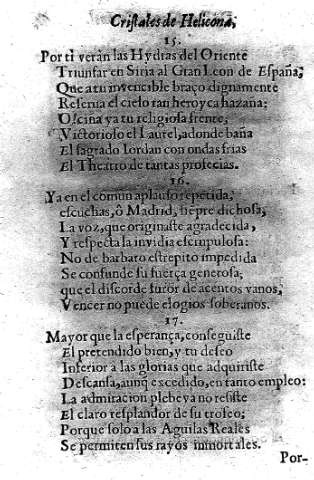 Cristales de Helicona,
15.
Por ti veràn las Hydras del Oriente
Triunfar en Siria al Gran Leon de España;
Que a tu invencible braço dignamente
Reserva el cielo tan heroyca hazaña:
O! ciña ya tu religiosa frente,
Victorioso el Laurel, adonde baña
El sagrado Iordan con ondas frias
El Theatro de tantas profecias.
16.
Ya en el comun aplauso repetida,
escuchas, ô Madrid, siẽpre dichosa,
La voz, que originaste agradecida,
Y respecta la invidia escrupulosa:
No de barbaro estrepito impedida
Se confunde su fuerça generosa,
que el discorde furor de acentos vanos,
Vencer no puede elogios soberanos.
17.
Mayor que la esperança, conseguiste
El pretendido bien, y tu deseo
Inferior a las glorias que adquiriste
Descansa, aunq̃ excedido, en tanto empleo:
La admiracion plebeya no resiste
El claro resplandor de su trofeo;
Porque solo a las Aguilas Reales
Se permiten sus rayos inmortales.
Por-